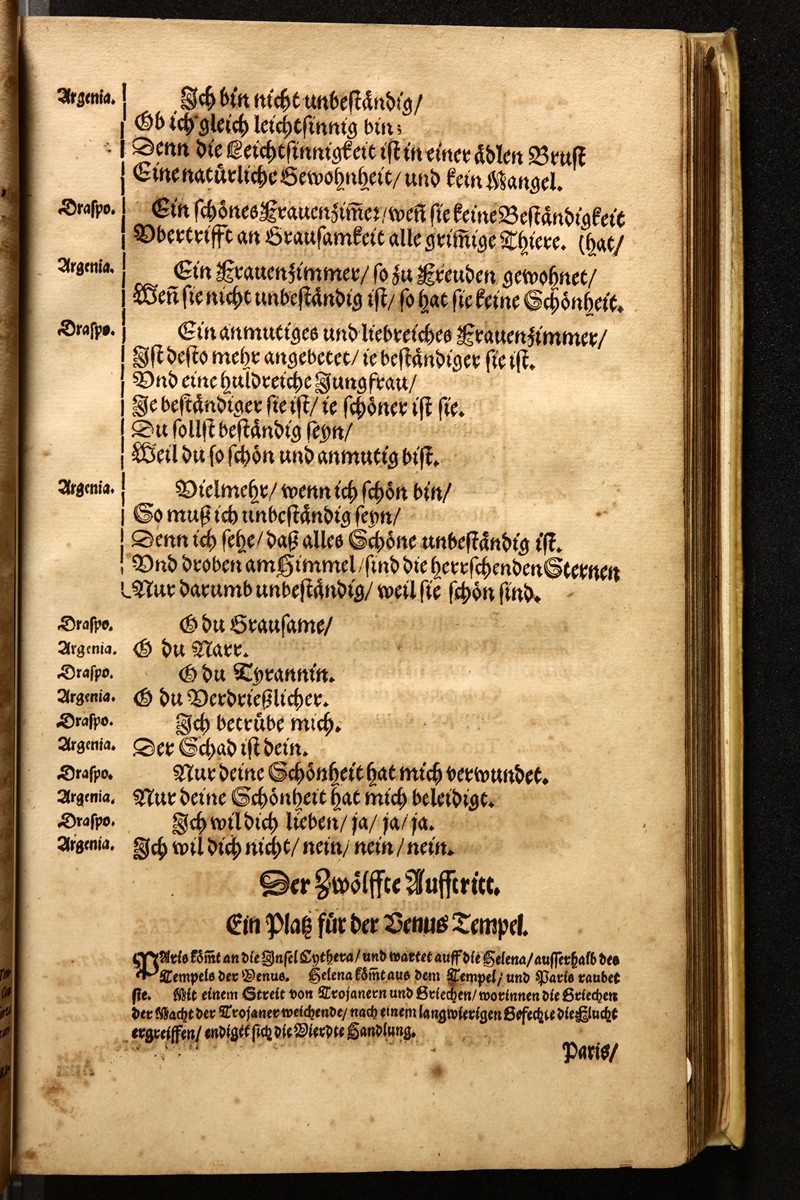 Argenia. Ich bin nicht unbeständig/
Ob ich gleich leichtsinnig bin;
Denn die Leichtsinnigkeit ist in einer ädlen Brust
Eine natürliche Gewohnheit/ und kein Mangel.
Draspo. Ein schönes Frauenzim̃er/ weñ sie keine Beständigkeit
Obertrifft an Grausamkeit alle grim̃ige Thiere. (hat/
Argenia. Ein Frauenzimmer/ so zu Freuden gewohnet/
Weñ sie nicht unbeständig ist/ so hat sie keine Schönheit.
Draspo. Ein anmutiges und liebreiches Frauenzimmer/
Ist desto mehr angebetet/ ie beständiger sie ist.
Vnd eine huldreiche Jungfrau/
Je beständiger sie ist/ ie schöner ist sie.
Du sollst beständig seyn/
Weil du so schön und anmutig bist.
Argenia. Vielmehr/ wenn ich schön bin/
So muß ich unbeständig seyn/
Denn ich sehe/ daß alles Schöne unbeständig ist.
Vnd droben am Himmel/ sind die herrschenden Sternen
Nur darumb unbeständig/ weil sie schön sind.
Draspo. O du Grausame/
Argenia. O du Narr.
Draspo. O du Tyrannin.
Argenia. O du Verdrießlicher.
Draspo. Ich betrübe mich.
Argenia. Der Schad ist dein.
Draspo. Nur deine Schönheit hat mich verwundet.
Argenia. Nur deine Schönheit hat mich beleidigt.
Draspo. Ich wil dich lieben/ ja/ ja/ ja.
Argenia. Ich wil dich nicht/ nein/ nein/ nein.
Der Zwölffte Aufftritt.
Ein Platz für der Venus Tempel.
PAris köm̃t an die Insel Cythera/ und wartet auff die Helena/ ausserhalb des
Tempels der Venus. Helena köm̃t aus dem Tempel/ und Paris raubet
sie. Mit einem Streit von Trojanern und Griechen/ worinnen die Griechen
der Macht der Trojaner weichende/ nach einem langwierigen Gefechte die Flucht
ergreiffen/ endiget sich die Vierdte Handlung.
Paris/